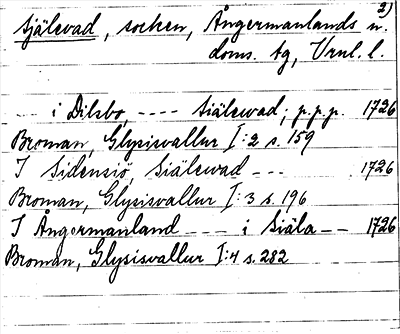 2)
Själevad, socken, Ångermanlands n.
doms. tg, Vrnl. l.
-- i Dilsbo, ---- Siälewad; p.p.p. 1726
Broman, Glysisvallur I:2 s. 159
I Sidensiö, Siälewad --- 1726
Broman, Glysisvallur I:3 s. 196
I Ångermanland --- i Siäla -- 1726
Broman, Glysisvallur I:4 s. 282